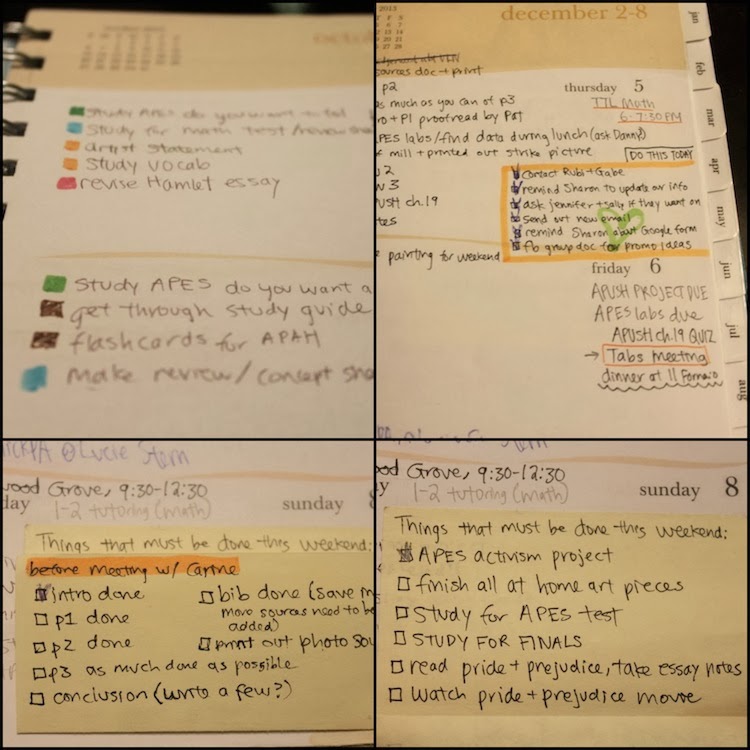 study APES do you want to
study for math test/review
artist statement
study vocab
revise Hamlet essay
study APES do you want a
get through study guide
flashcards for APAH
make review/concept
2013
december 2-8
jan
feb
mar
apr
may
jun
jul
aug
sources doc + print
p2
as much as you can of p3
+ P1 proofread by Pat
APES labs/find data during lunch (ask Danny)
mill + printed out strike picture
2
3
APUSH ch.19
painting for weekend
thursday 5
TTL Math
6-7:30PM
DO THIS TODAY
contact Rubi + Gabe
remind Sharon to update our info
ask jennifer + sally if they want on
send out new email
remind Sharon about Google form
fb group doc for promo ideas
friday 6
APUSH PROJECT DUE
APES labs due
APUSH ch.19 QUIZ
→ Tabs meeting
dinner at Il Fornaio
@ Lucie Stern
wood Grove, 9:30-12:30
1-2 tutoring (math)
sunday 8
Things that must be done this weekend:
before meeting w/
intro done
p1 done
p2 done
p3 as much done as possible
conclusion (write a few?)
bib done (save
more sources need to be
added)
print out photo
wood Grove, 9:30-12:30
1-2 tutoring (math)
sunday 8
Things that must be done this weekend:
APES activism project
finish all at home art pieces
Study for APES test
STUDY FOR FINALS
read pride + prejudice, take essay notes
watch pride + prejudice movie